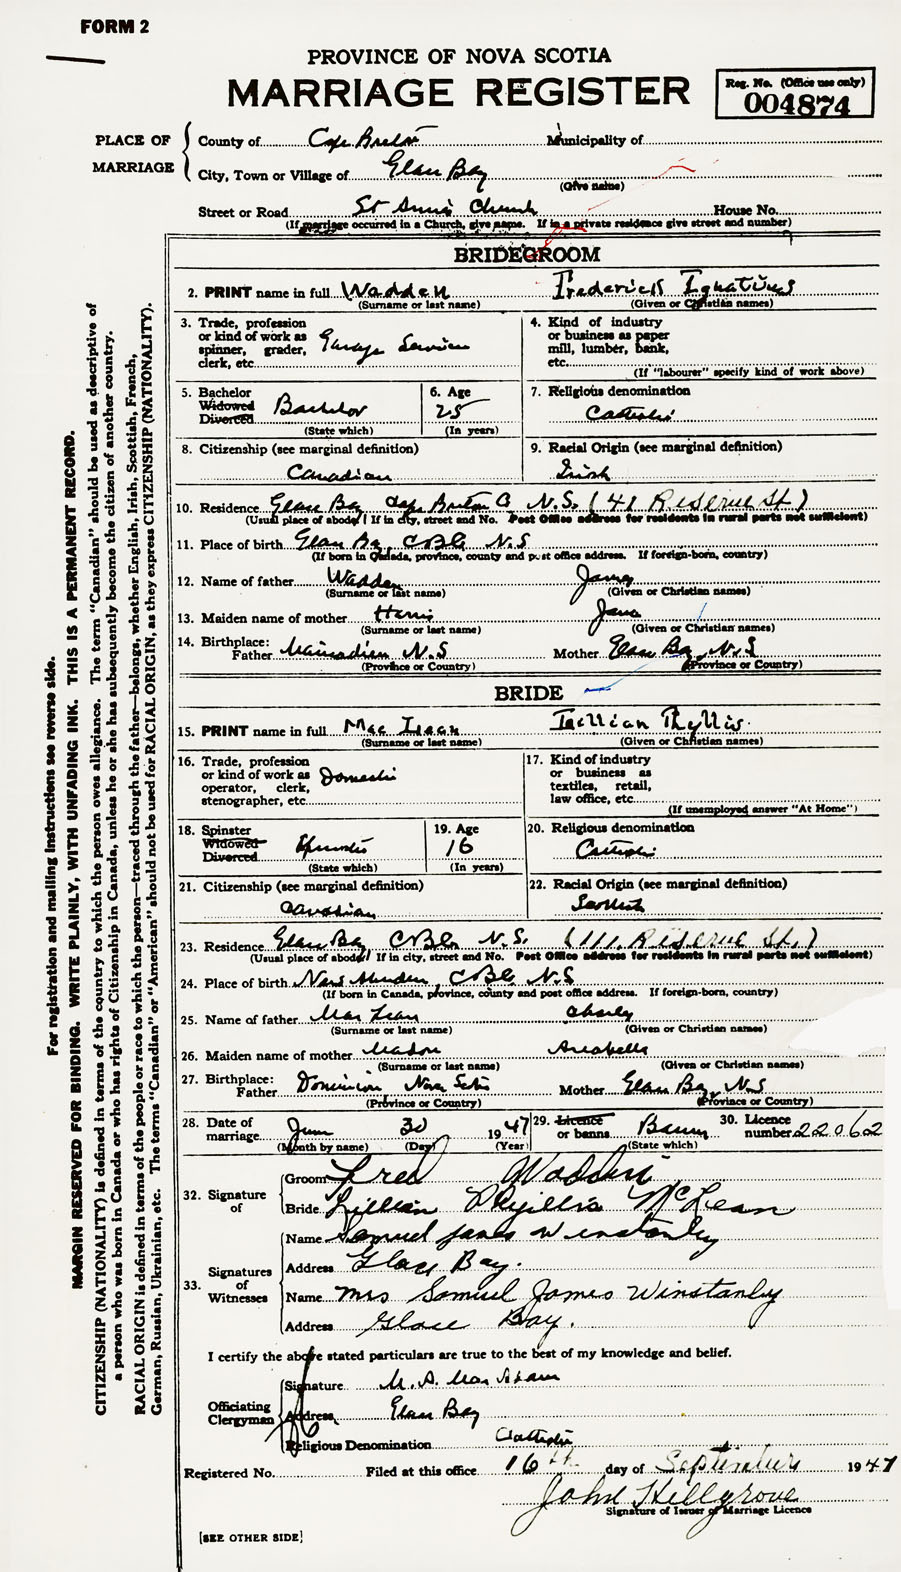 FORM 2
PROVINCE OF NOVA SCOTIA
MARRIAGE REGISTER
Reg. No. (Office use only)
004874
PLACE OF MARRIAGE
County of Cape Breton Municipality of
City, Town or Village of Glace Bay
(Give name)
Street or Road St Anns Church House No.
(If marriage occurred in a Church, give name. If in a private residence give street and number)
BRIDEGROOM
2. PRINT name in full Wadden Frederick Ignatius
(Surname or last name) (Given or Christian names)
3. Trade, profession or kind of work as spinner, grader, clerk, etc. Garage Service
4. Kind of industry or business as paper mill, lumber, bank, etc.
(If "labourer" specify kind of work above)
5. Bachelor Widowed Divorced Bachelor
(State which)
6. Age 25
(In years)
7. Religious denomination
Catholic
8. Citizenship (see marginal definition)
Canadian
9. Racial Origin (see marginal definition)
Irish
10. Residence Glace Bay Cape Breton Co N.S. (41 Reserve St.)
(Usual place of abode) If in city, street and No. Post Office address for residents in rural parts not sufficient)
11. Place of birth Glace Bay CBCo N.S
(If born in Canada, province, county and post office address. If foreign-born, country)
12. Name of father Wadden James
(Surname or last name) (Given or Christian names)
13. Maiden name of mother Harris Jane
(Surname or last name) (Given or Christian names)
14. Birthplace: Father N.S Mother Glace Bay, N.S
(Province or Country) (Province or Country)
BRIDE
15. PRINT name in full Mac Lean Lillian Phyllis
(Surname or last name) (Given or Christian names)
16. Trade, profession or kind of work as operator, clerk, stenographer, etc. Domestic
17. Kind of industry or business as textiles, retail, law office, etc.
(If unemployed answer "At Home")
18. Spinster Widowed Divorced Spinster
(State which)
19. Age 16
(In years)
20. Religious denomination
Catholic
21. Citizenship (see marginal definition)
Canadian
22. Racial Origin (see marginal definition)
Scottish
23. Residence Glace Bay CBCo N.S. (111 Reserve St.)
(Usual place of abode) If in city, street and No. Post Office address for residents in rural parts not sufficient)
24. Place of birth New Aberdeen, CBCo N.S
(If born in Canada, province, county and post office address. If foreign-born, country)
25. Name of father Mac Lean Charles
(Surname or last name) (Given or Christian names)
26. Maiden name of mother Annabelle
(Surname or last name) (Given or Christian names)
27. Birthplace: Father Dominion Nova Scotia Mother Glace Bay, N.S
(Province or Country) (Province or Country)
28. Date of marriage June 30 1947
(Month by name) (Day) (Year)
29. Licence or banns Banns
(State which)
30. Licence number 22062
32. Signature of
Groom Fred Wadden
Bride Lillian Phyllis McLean
33. Signatures of Witnesses
Name Samuel James Winstanley
Address Glace Bay.
Name Mrs Samuel James Winstanley
Address Glace Bay.
I certify the above stated particulars are true to the best of my knowledge and belief.
Officiating Clergyman
Signature M. A. MacAdam
Address Glace Bay
Religious Denomination Catholic
Registered No. Filed at this office 16th day of September 1947
John Hillgrove
Signature of Issuer of Marriage Licence
[SEE OTHER SIDE]
For registration and mailing instructions see reverse side.
MARGIN RESERVED FOR BINDING. WRITE PLAINLY, WITH UNFADING INK. THIS IS A PERMANENT RECORD.
CITIZENSHIP (NATIONALITY) is defined in terms of the country to which the person owes allegiance. The term "Canadian" should be used as descriptive of
a person who was born in Canada or who has rights of Citizenship in Canada, unless he or she has subsequently become the citizen of another country.
RACIAL ORIGIN is defined in terms of the people or race to which the person—traced through the father—belongs, whether English, Irish, Scottish, French,
German, Russian, Ukrainian, etc. The terms "Canadian" or "American" should not be used for RACIAL ORIGIN, as they express CITIZENSHIP (NATIONALITY).